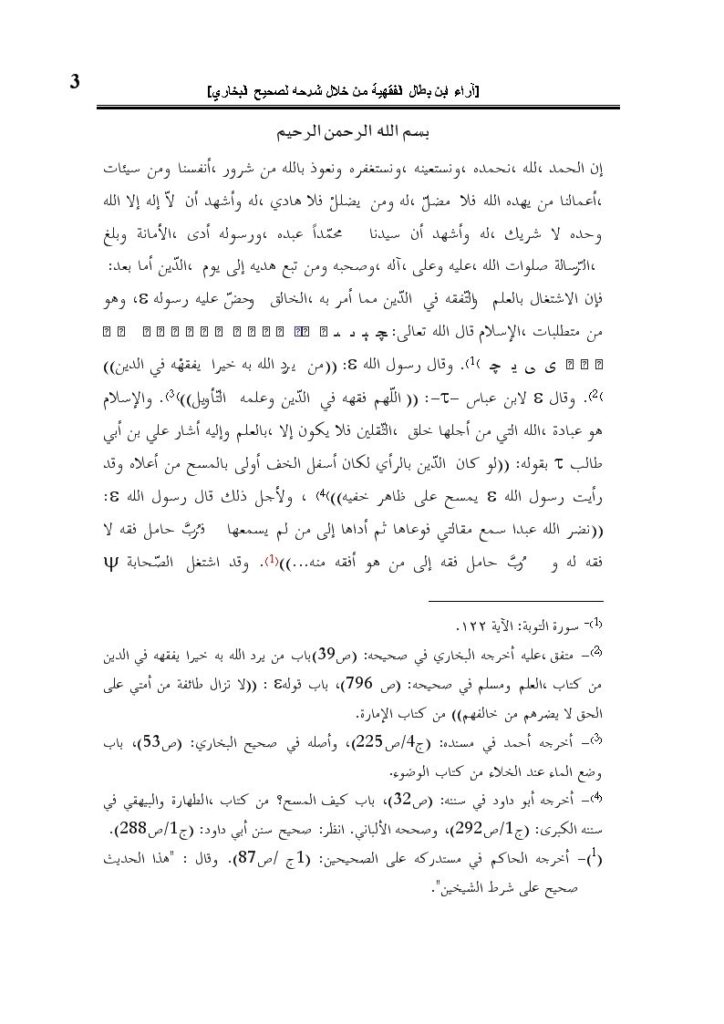 3
[آراء ابن بطال الفقهية من خلال شرحه لصحيح البخاري]
بسم الله الرحمن الرحيم
إن الحمد ،لله ،نحمده ،ونستعينه ،ونستغفره ونعوذ بالله من شرور ،أنفسنا ومن سيئات
،أعمالنا من يهده الله فلا مضلّ ،له ومن يضللْ فلا هادي ،له وأشهد أن لاّ إله إلا الله
وحده لا شريك ،له وأشهد أن سيدنا محمّداً عبده ،ورسوله أدى ،الأمانة وبلغ
،الرّسالة صلوات الله ،عليه وعلى ،آله ،وصحبه ومن تبع هديه إلى يوم ،الدّين أما بعد:
فإن الاشتغال بالعلم والتّفقه في الدّين مما أمر به ،الخالق وحضّ عليه رسوله ε، وهو
من متطلبات ،الإسلام قال الله تعالى:
ﯼ ﯽ ﯾ ﭼ (1). وقال رسول الله ε: ((من يرد الله به خيرا يفقهْه في الدين))
(2). وقال ε لابن عباس –τ–: (( اللّهم فقهه في الدّين وعلمه التّأويل))(3). والإسلام
هو عبادة ،الله التي من أجلها خلق ،الثّقلين فلا يكون إلا ،بالعلم وإليه أشار علي بن أبي
طالب τ بقوله: ((لو كان الدّين بالرأي لكان أسفل الخف أولى بالمسح من أعلاه وقد
رأيت رسول الله ε يمسح على ظاهر خفيه))(4) ، ولأجل ذلك قال رسول الله ε:
((نضر الله عبدا سمع مقالتي فوعاها ثم أداها إلى من لم يسمعها فرُبَّ حامل فقه لا
فقه له و رُبَّ حامل فقه إلى من هو أفقه منه...))(1). وقد اشتغل الصّحابة ψ
(1)- سورة التوبة: الآية ١٢٢.
(2)– متفق ،عليه أخرجه البخاري في صحيحه: (ص39)باب من يرد الله به خيرا يفقهه في الدين
من كتاب ،العلم ومسلم في صحيحه: (ص 796)، باب قولهε : ((لا تزال طائفة من أمتي على
الحق لا يضرهم من خالفهم)) من كتاب الإمارة.
(3)– أخرجه أحمد في مسنده: (ج4/ص225)، وأصله في صحيح البخاري: (ص53)، باب
وضع الماء عند الخلاء من كتاب الوضوء.
(4)– أخرجه أبو داود في سننه: (ص32)، باب كيف المسح؟ من كتاب ،الطهارة والبيهقي في
سننه الكبرى: (ج1/ص292)، وصححه الألباني. انظر: صحيح سنن أبي داود: (ج1/ص288).
(1)– أخرجه الحاكم في مستدركه على الصحيحين: (1ج /ص87). وقال : "هذا الحديث
صحيح على شرط الشيخين".